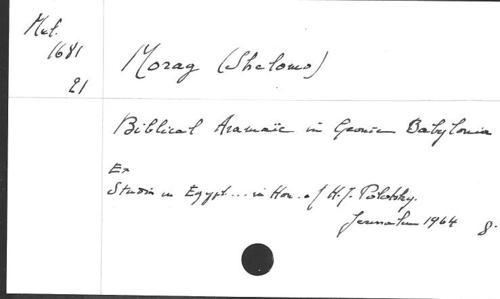 Mél.
1681
21
Morag (Shelomo)
Biblical Aramaïc in Geonic Babylonia
Ex
Studies in Egypt... in Hon. of H.J. Polotsky.
Jerusalem 1964 8.